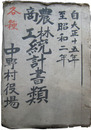 自大正十五年
至昭和二年
各種
農林
商工
統計書類
中野村役場